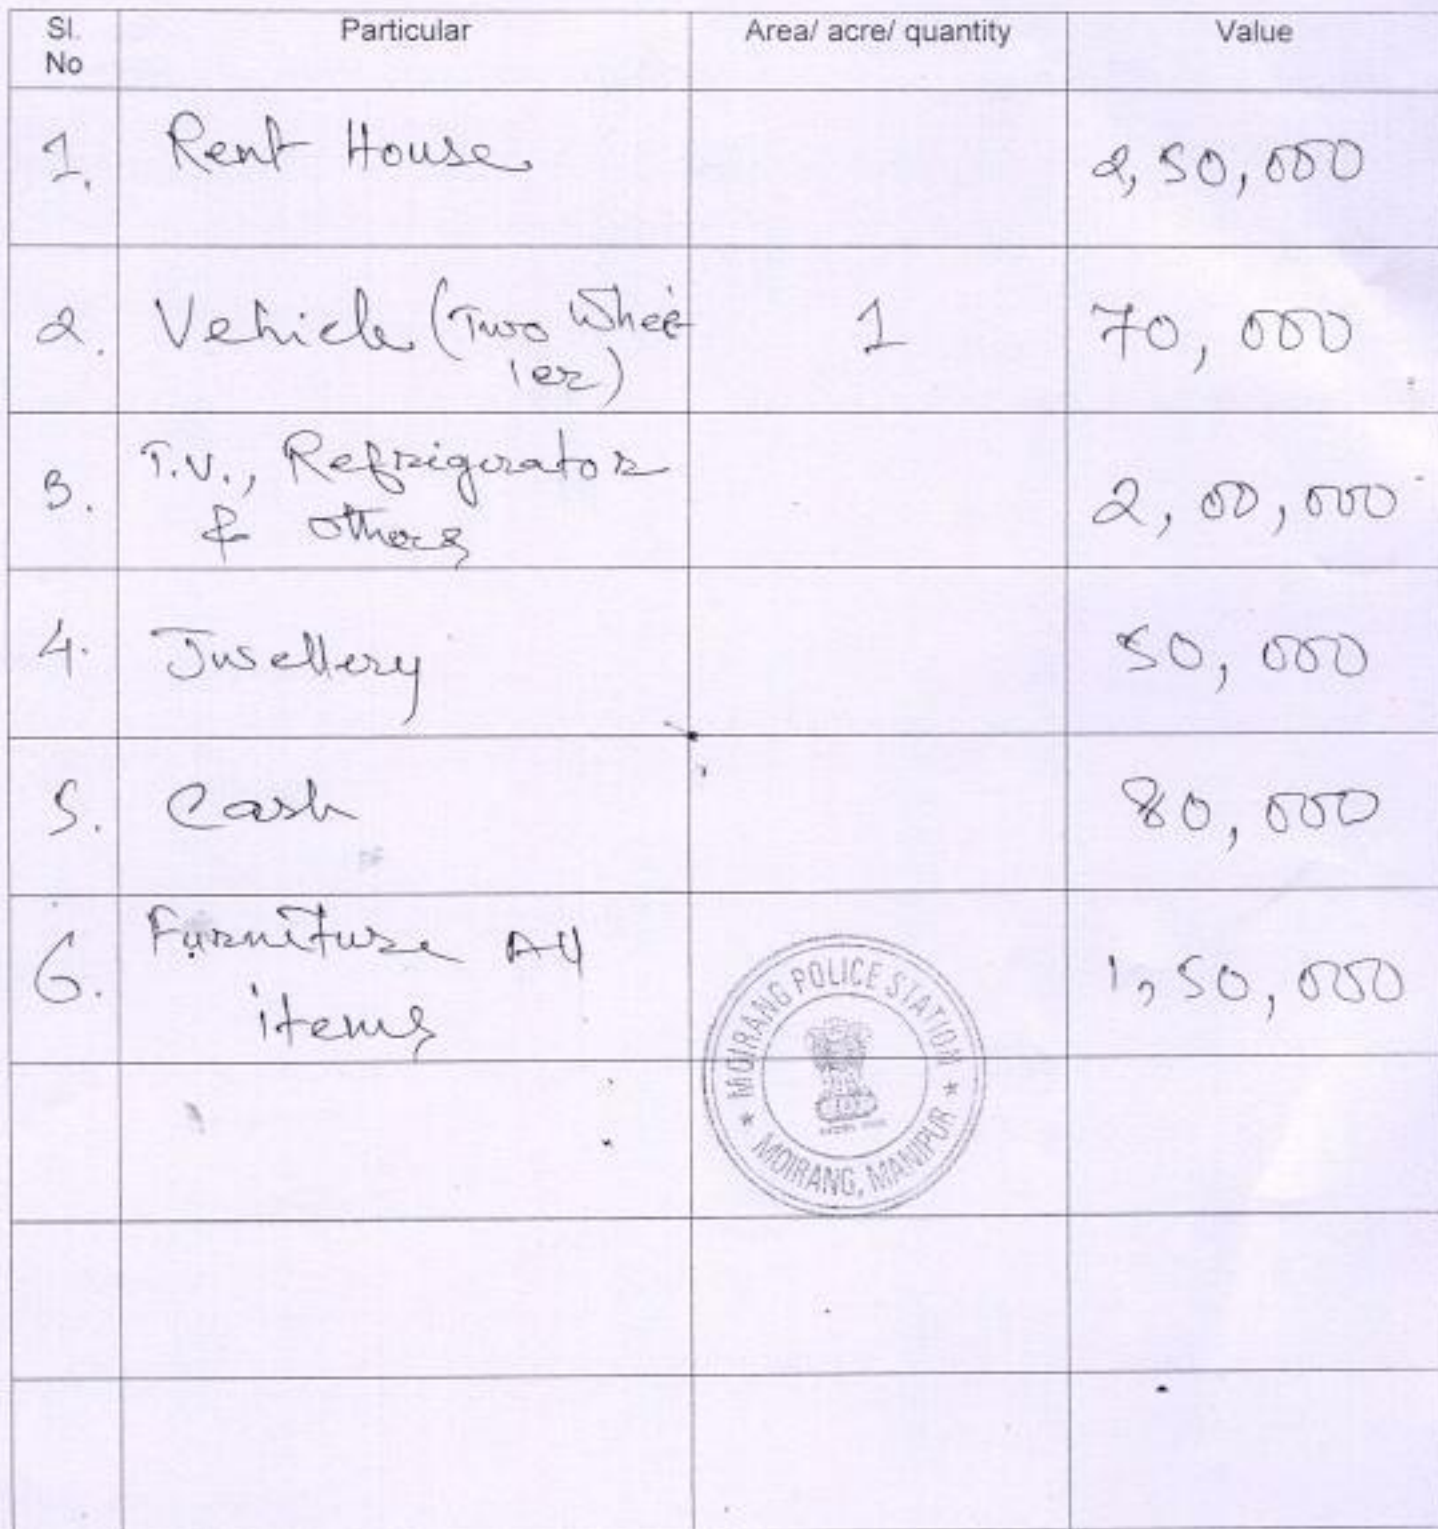 Sl. No Particular Area/ acre/ quantity Value
1. Rent House 2,50,000
2. Vehicle (Two Whee 1 70,000
ler)
3. T.V., Refrigirator 2,00,000
& others
4. Jwellery 50,000
5. Cash 80,000
6. Furniture All 1,50,000
items
* MOIRANG POLICE STATION *
MOIRANG, MANIPUR